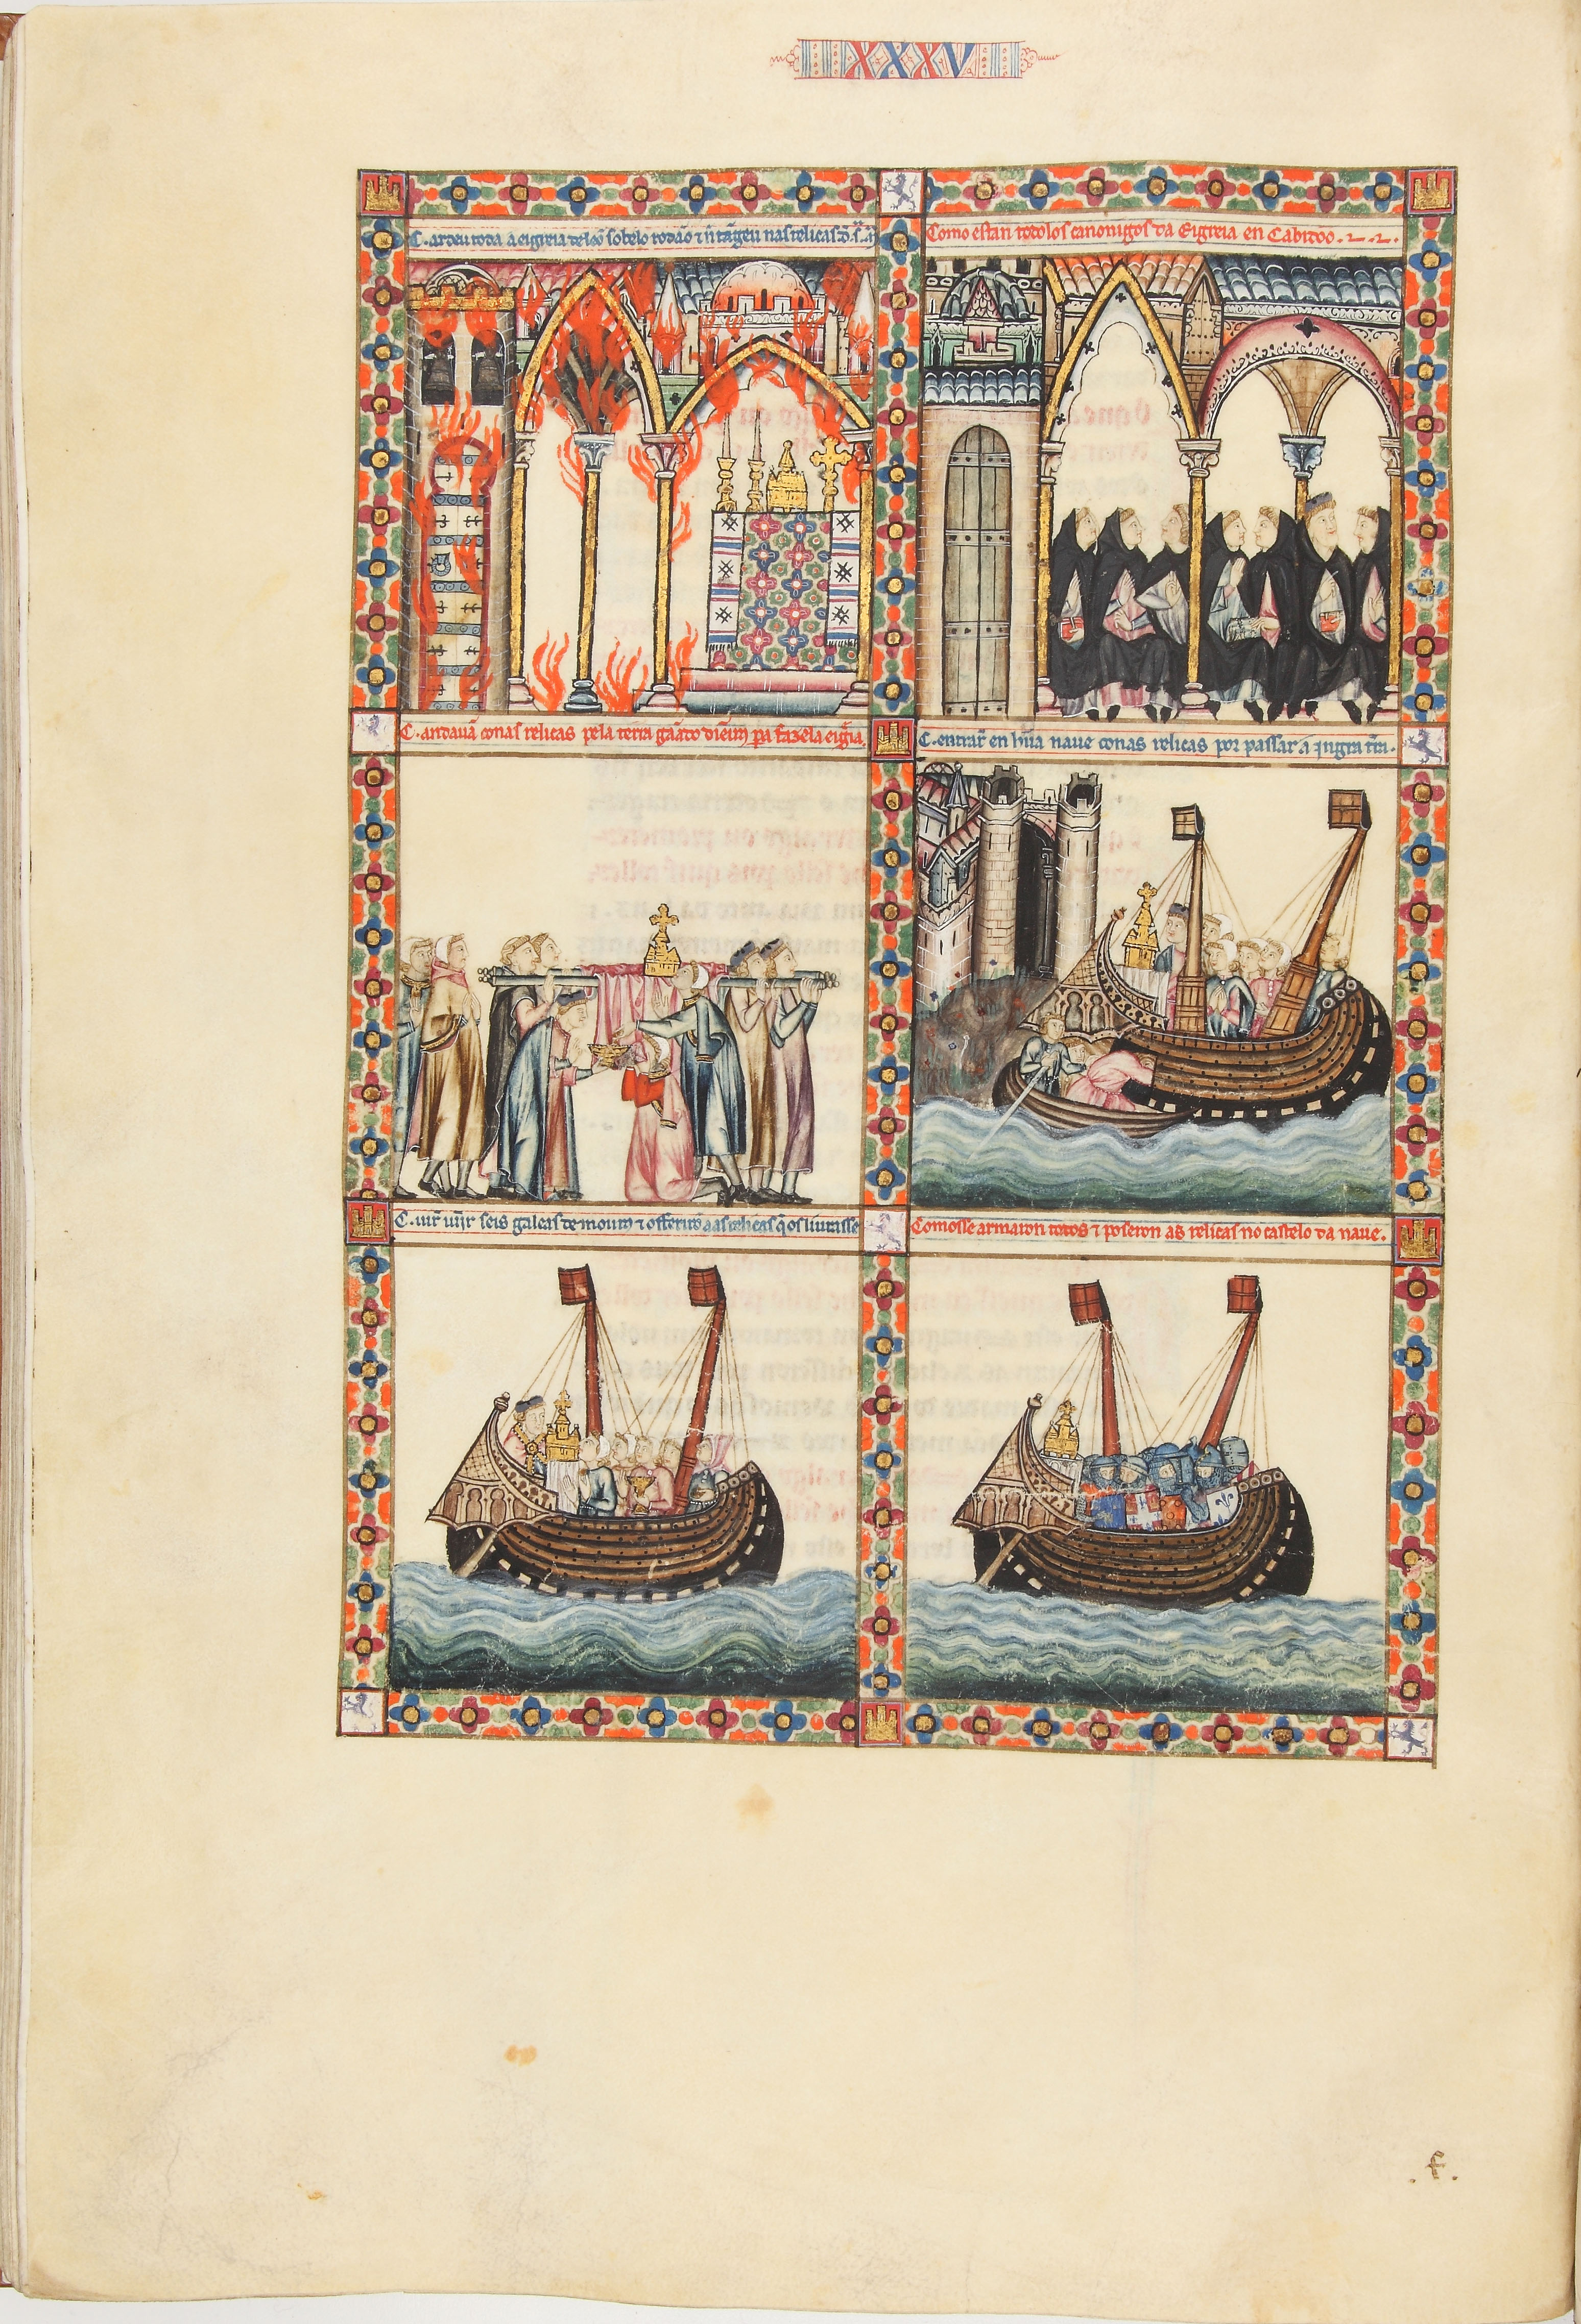 XXXV
C. ardeu toda a eigreia de leõ sobelo rodão ⁊ nõ tãgeu nas relicas d̃ s̃ m̃
Como estan todolos canonigos da Eigreia en Cabidoo.
C. andauã conas relicas pela terra gãando dieir̃ pa fazela eigr̃ia.
C. entrar̃ en hũa naue conas relicas por passar a Jngra tr̃a.
C. uir̃ uĩir seis galeas de mour̃ ⁊ offerir̃ aas relicas q̃ os liurasse
Comosse armaron todos ⁊ poseron as relicas no castelo da naue.
.f.